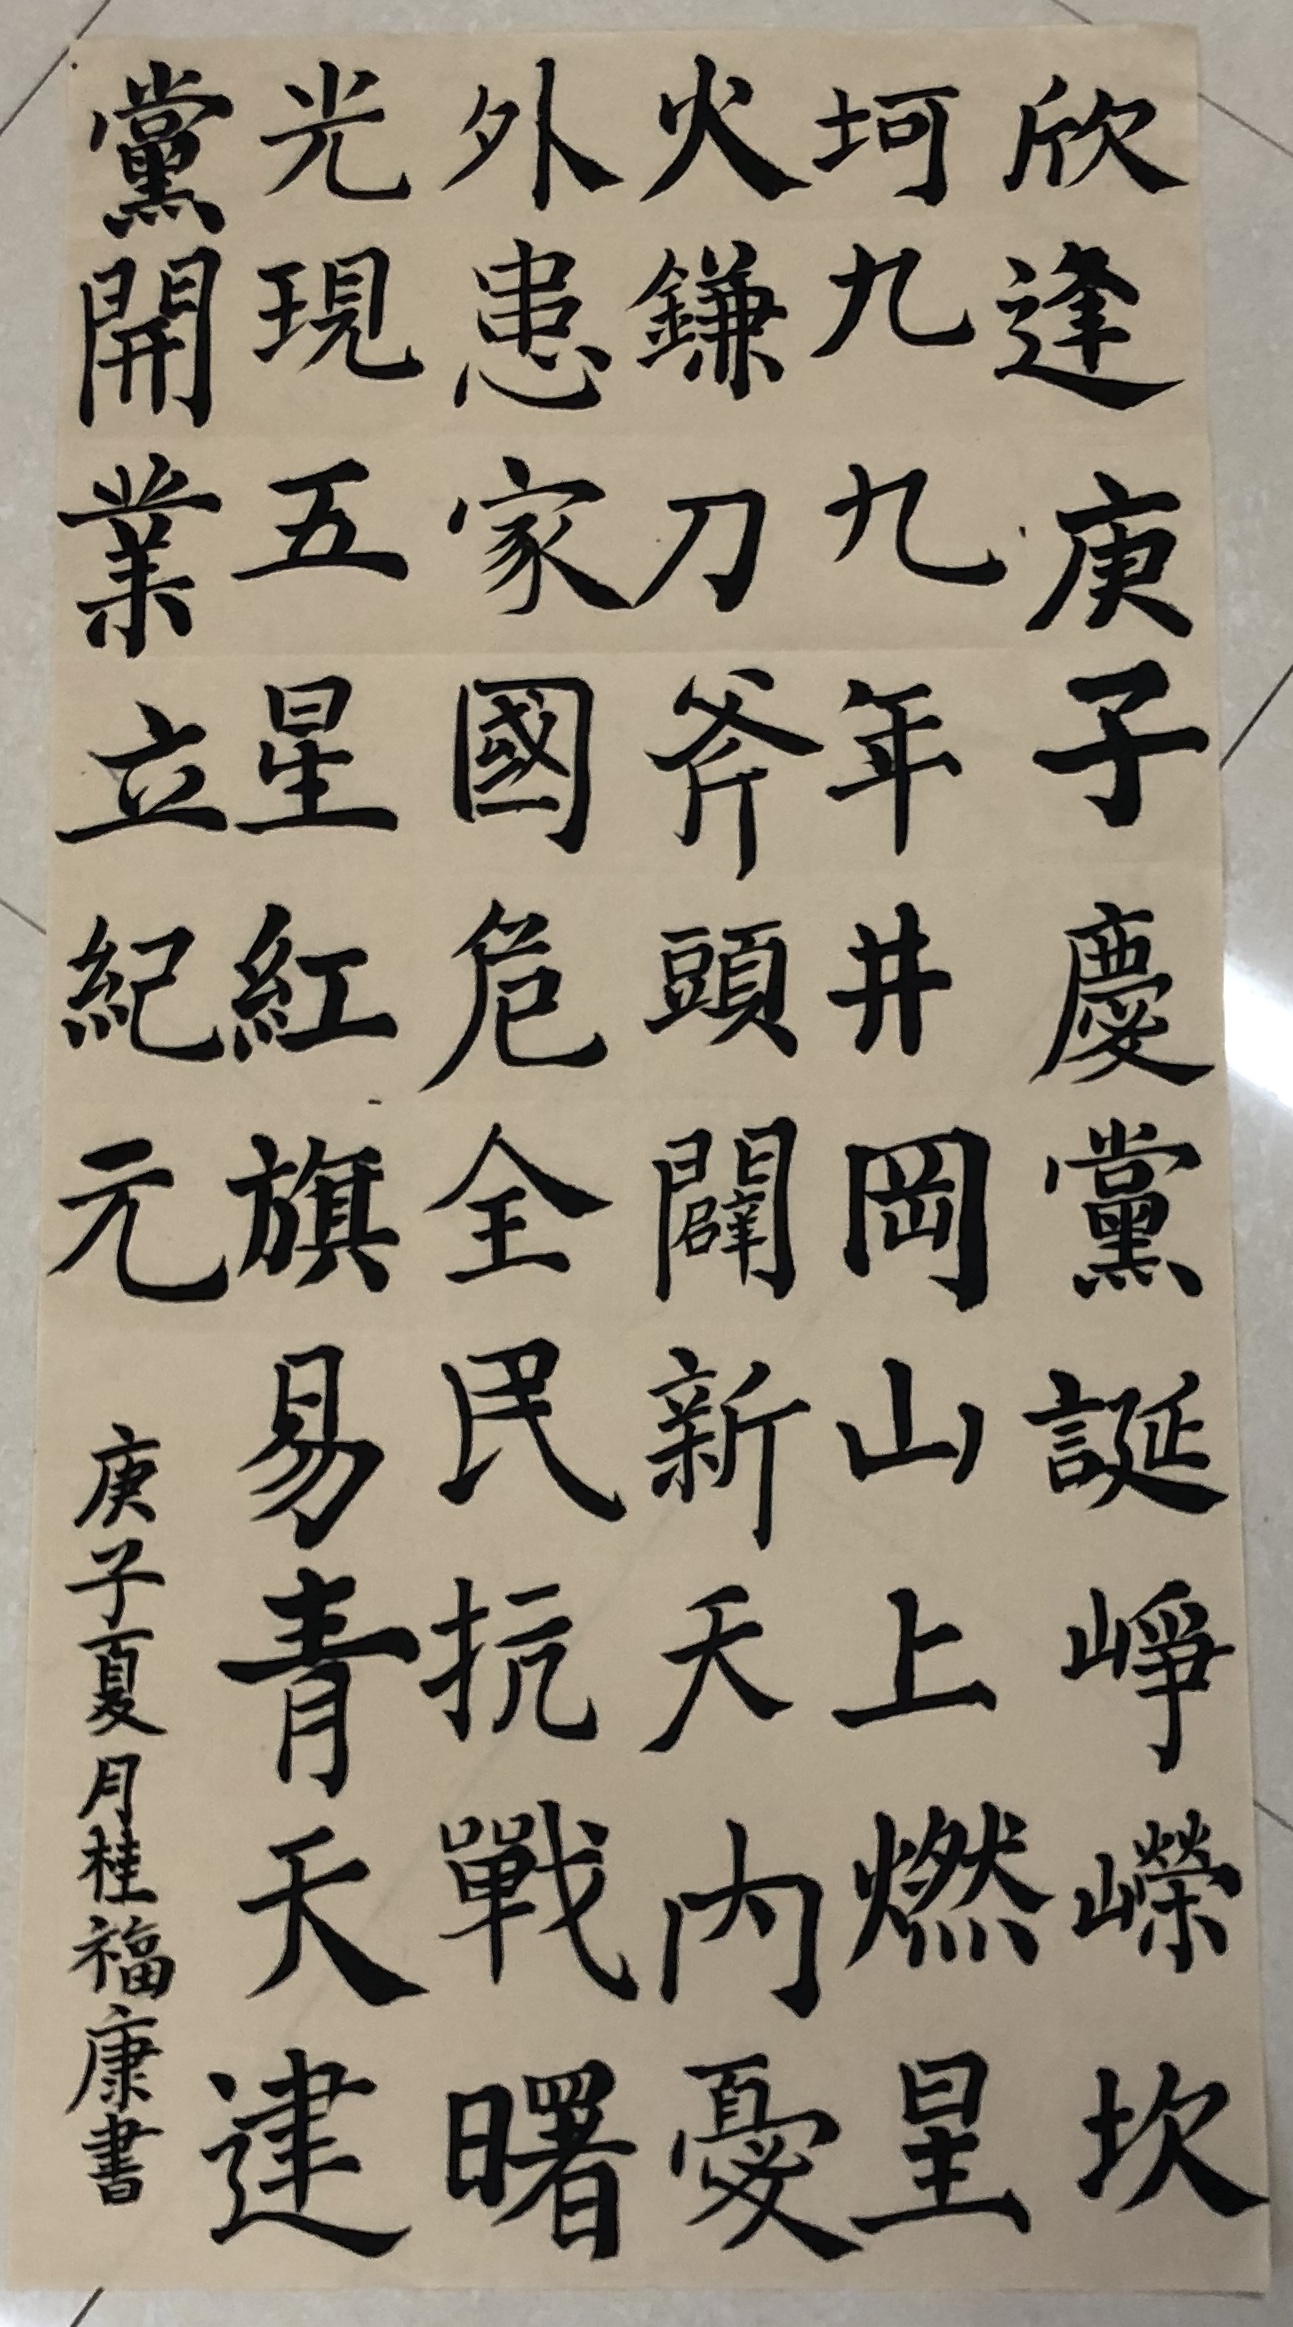 欣逢庚子慶黨誕崢嶸坎
坷九九年井岡山上燃星
火鎌刀斧頭闢新天內憂
外患家國危全民抗戰曙
光現五星紅旗易青天建
黨開業立紀元
庚子夏月桂福康書